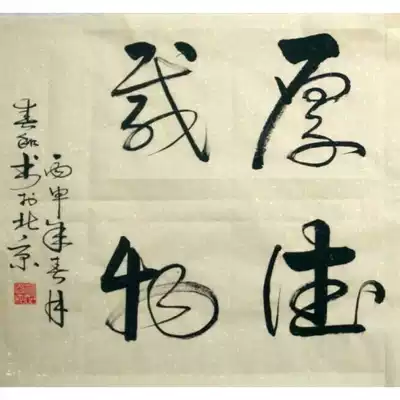 厚德
载物
丙申年春月
春和书於北京